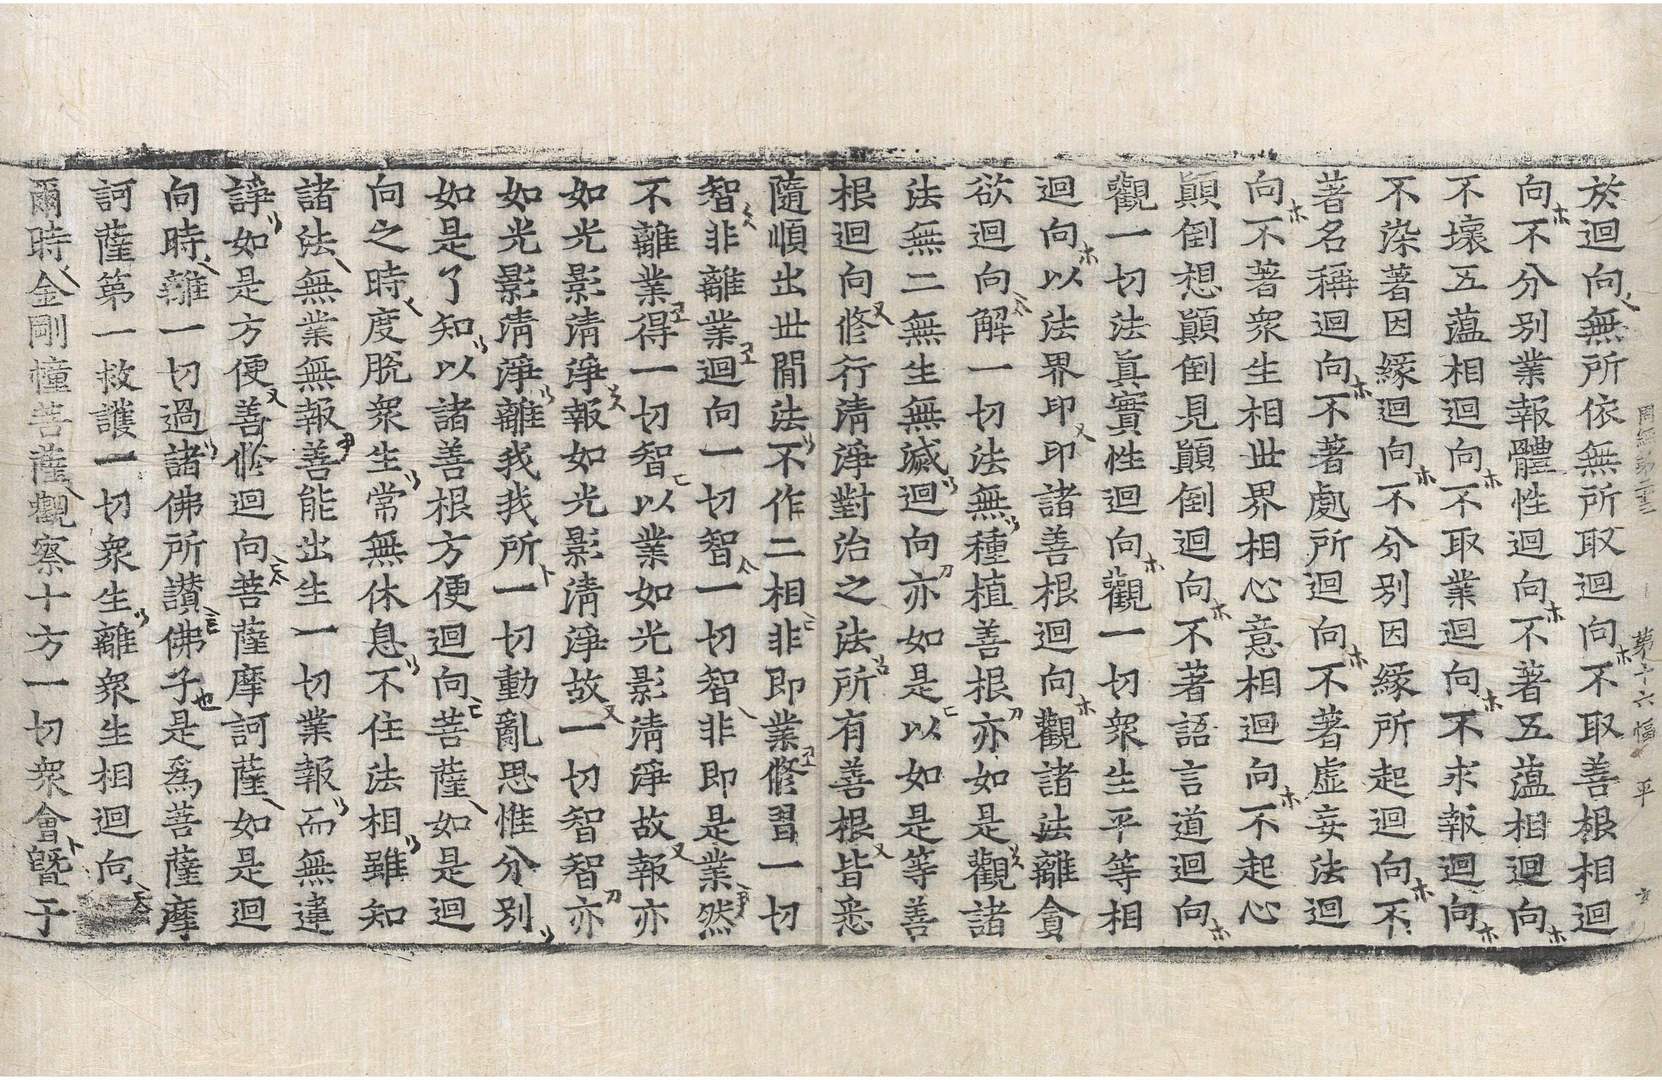 周經第二十三 第十六幅 平
於迴向無所依無所取迴向不取善根相迴
向不分别業報體性迴向不著五蕰相迴向
不壞五蕰相迴向不取業迴向不求報迴向
不染著因緣迴向不分别因緣所起迴向不
著名稱迴向不著處所迴向不著虛妄法迴
向不著衆生相世界相心意相迴向不起心
顚倒想顚倒見顚倒迴向不著語言道迴向
觀一切法眞實性迴向觀一切衆生平等相
迴向以法界印印諸善根迴向觀諸法離貪
欲迴向解一切法無種植善根亦如是觀諸
法無二無生無滅迴向亦如是以如是等善
根迴向修行清淨對治之法所有善根皆悉
隨順出世間法不作二相非即業修習一切
智非離業迴向一切智一切智非即是業然
不離業得一切智以業如光影清淨故報亦
如光影清淨報如光影清淨故一切智智亦
如光影清淨離我我所一切動亂思惟分别
如是了知以諸善根方便迴向菩薩如是迴
向之時度脫衆生常無休息不住法相雖知
諸法無業無報善能出生一切業報而無違
諍如是方便善修迴向菩薩摩訶薩如是迴
向時離一切過諸佛所讃佛子是爲菩薩摩
訶薩第一救護一切衆生離衆生相迴向
爾時金剛幢菩薩觀察十方一切衆會曁于